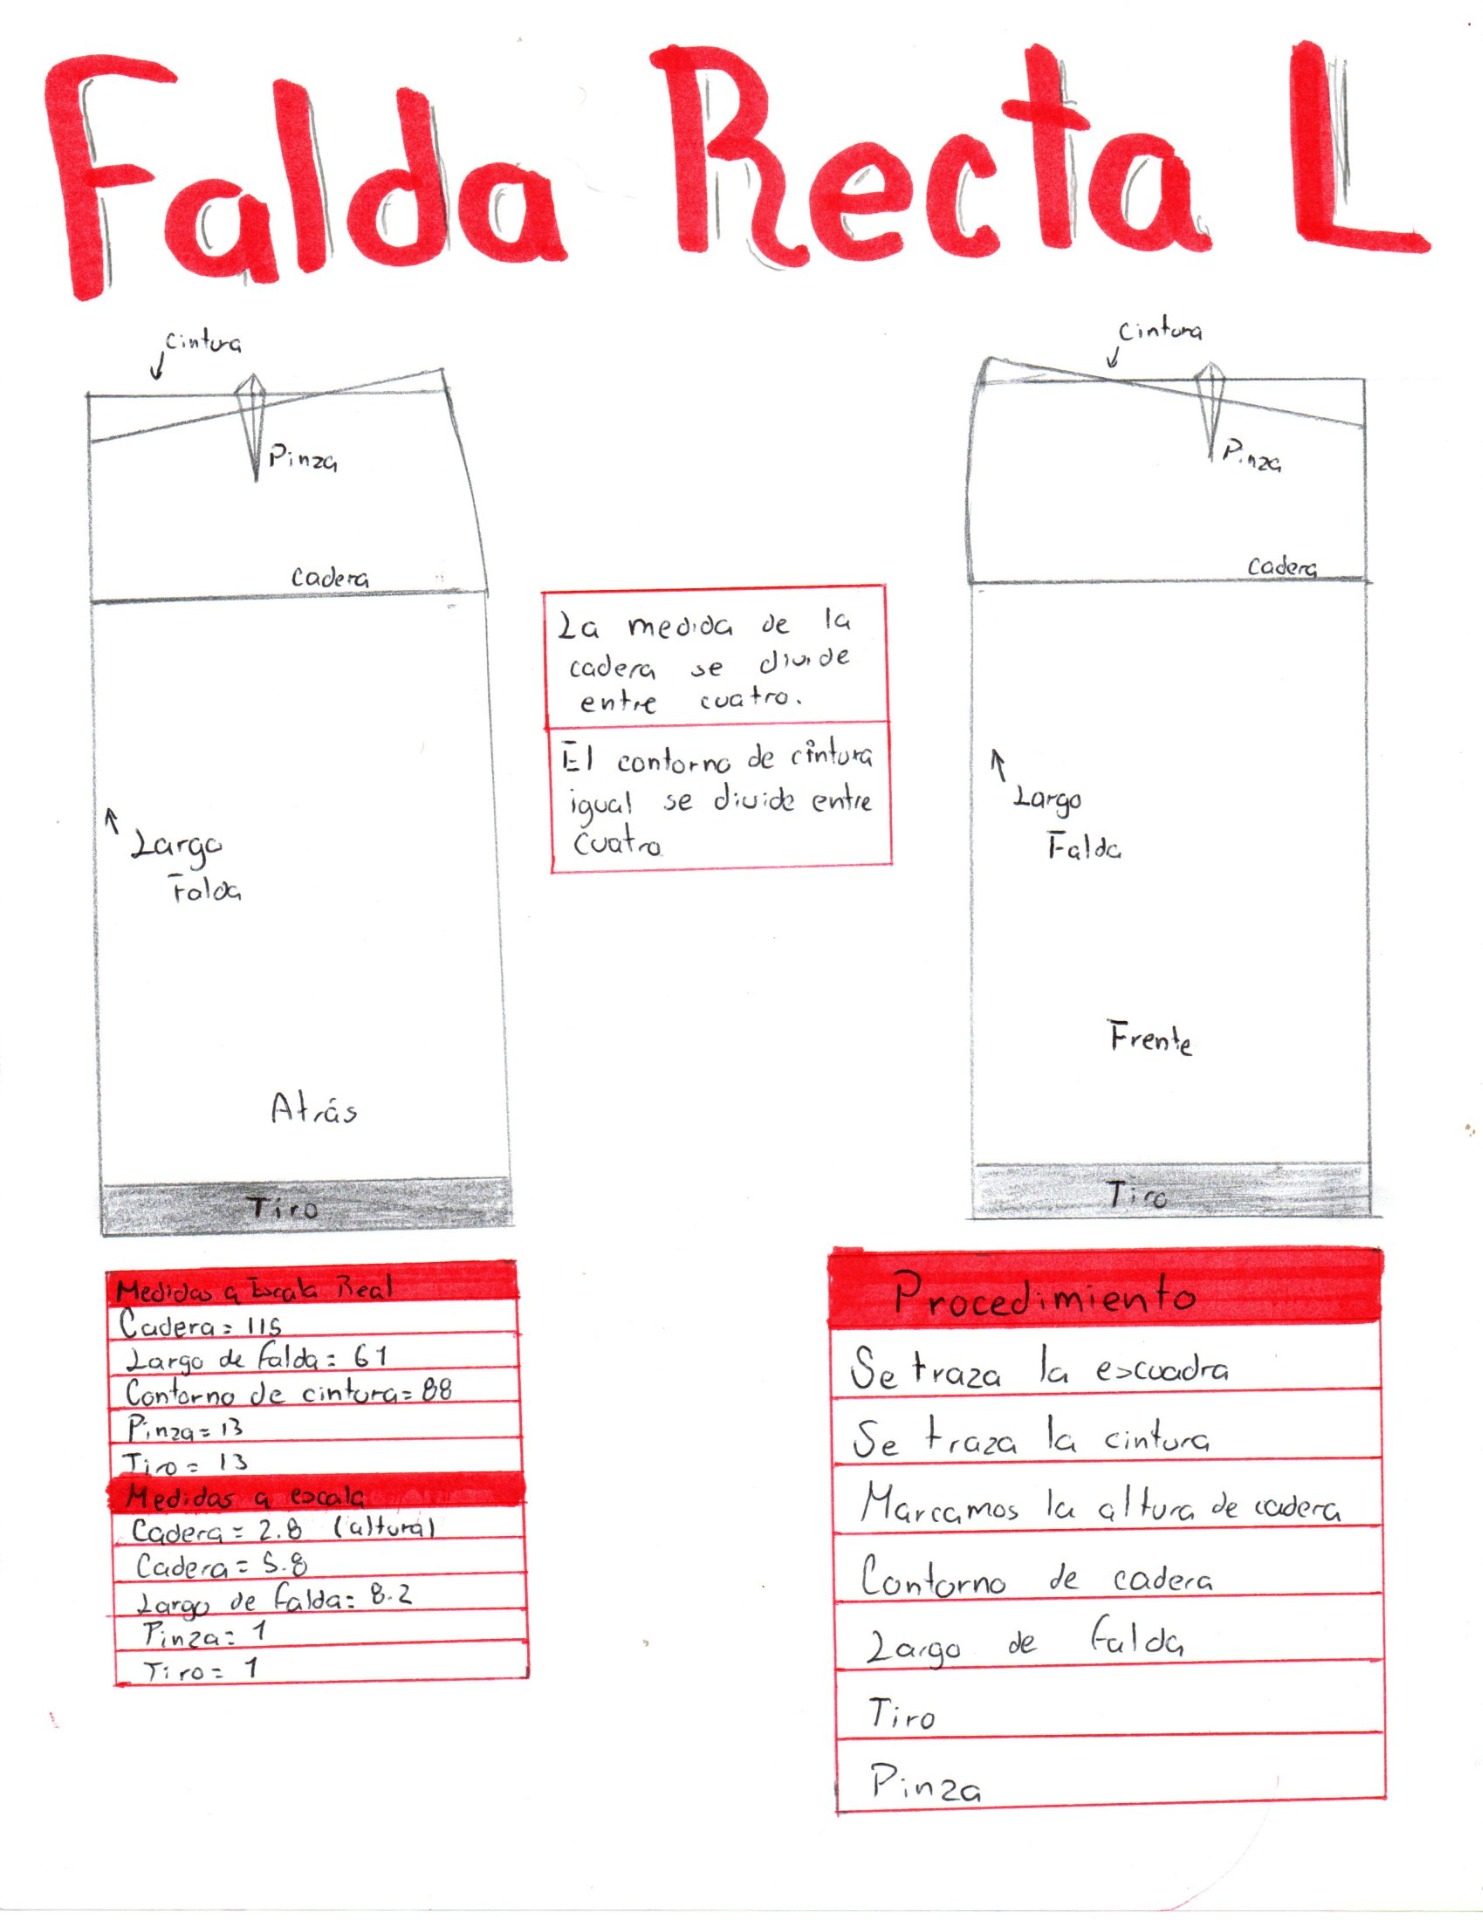 Falda Recta L
Cintura
Pinza
Cadera
Largo
Falda
Atrás
Tiro
La medida de la
cadera se divide
entre cuatro.
El contorno de cintura
igual se divide entre
cuatro
Cintura
Pinza
Cadera
Largo
Falda
Frente
Tiro
Medidas a Escala Real
Cadera = 115
Largo de falda = 61
Contorno de cintura = 88
Pinza = 13
Tiro = 13
Medidas a escala
Cadera = 2.8 (altura)
Cadera = 5.8
Largo de falda = 8.2
Pinza = 1
Tiro = 1
Procedimiento
Se traza la escuadra
Se traza la cintura
Marcamos la altura de cadera
Contorno de cadera
Largo de falda
Tiro
Pinza